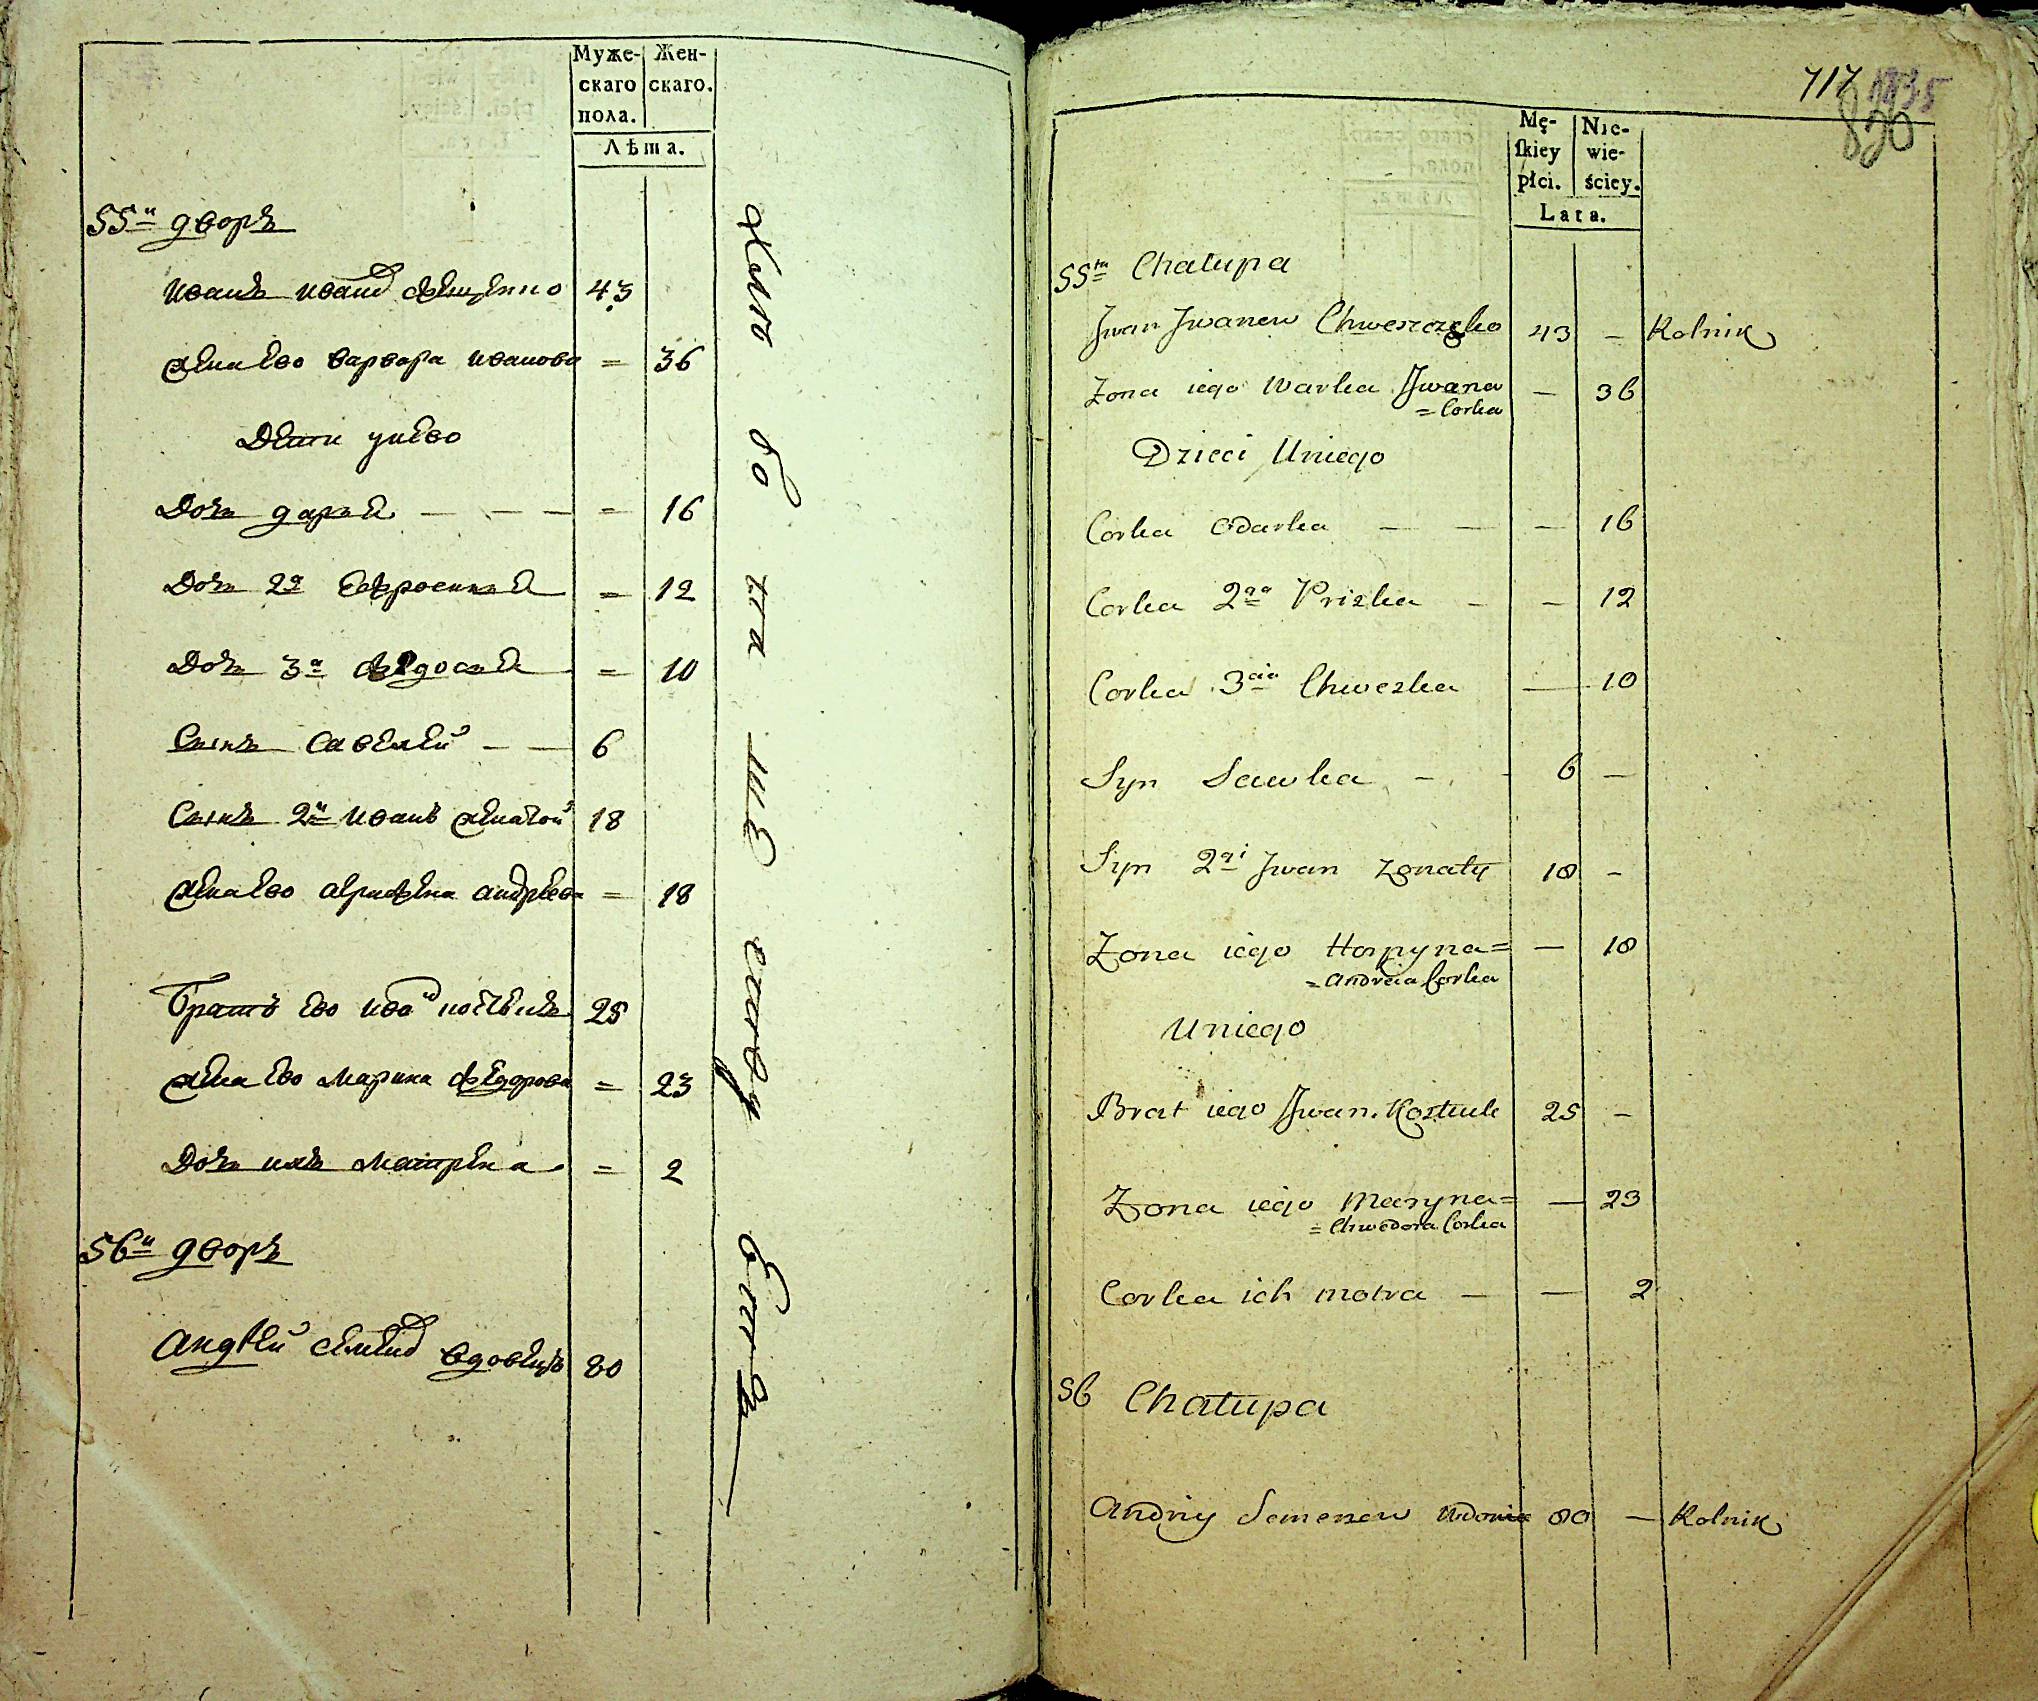 Муже-
скаго
пола.
Жен-
скаго.
Лѣта.
55й дворъ
Иванъ Иванъ Фещенко 43
Жена Ево Варвара Иванова = 36
Дети у нево
Дочь Дарья — — — = 16
Дочь 2я Евфросиния = 12
Дочь 3я Федосия = 10
Сынъ Савелий — — 6
Сынъ 2й Иванъ женатой 18
Жена Ево Агрифена Андреева = 18
Братъ Ево Иванъ 25
Жена Ево Марина Федорова = 23
Дочь ихъ Матрена = 2
56й дворъ
Андрей Семенъ вдовецъ 80
717 1835
820
Mę-
skiey
płci.
Nie-
wie-
ściey.
Lata.
55ta Chałupa
Jwan Jwanew Chweszczęko 43 — Rolnik
Zona iego Warka Jwana 36
= Corka
Dzieci Uniego
Corka Odarka — — — 16
Corka 2ga Priska — — 12
Corka 3cia Chweska — 10
Syn Sawka — - 6 —
Syn 2gi Jwan Zonaty 18 —
Zona iego Horpyna = — 18
= Andreia Corka
Uniego
Brat iego Jwan Kostiuk 25 —
Zona iego Maryna = — 23
= Chwedora Corka
Corka ich Motra — — 2
56 Chałupa
Andriy Semenew Wdowiec 80 — Rolnik